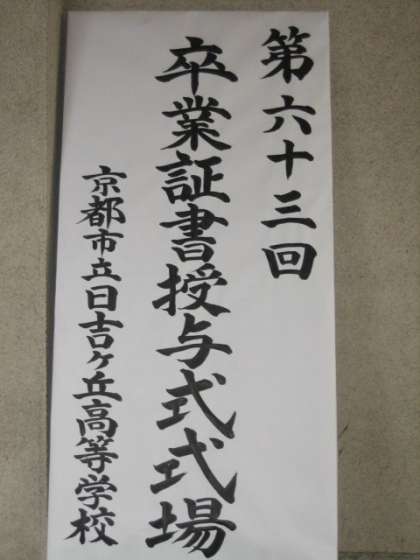 第六十三回
卒業証書授与式式場
京都市立日吉ケ丘高等学校